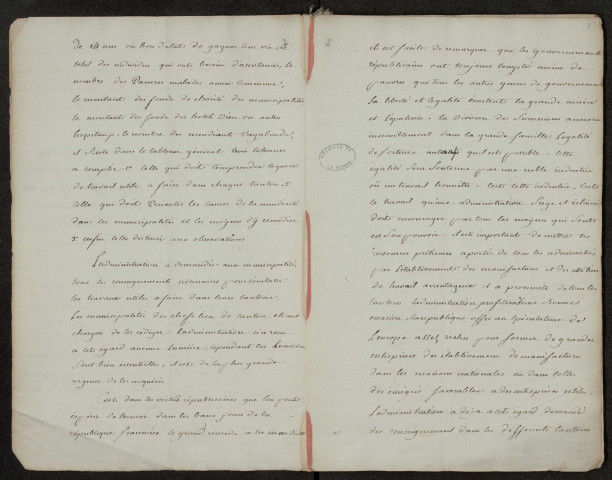 de 14 ans ou hors d'etat de gagner leur vie, le
total des individus qui ont besoin d'assistance, le
nombre des Pauvres malades année commune,
le montant des fonds de charité des municipalités
le montant des fonds des hotel Dieu ou autres
hospitaux, le nombre des mendiants Vagabonds,
il reste dans le tableau général trois colonnes
a remplir 1° celle qui doit comprendre le genre
de travail utile a faire dans chaque canton, 2°
celle que doit Presenter les causes de la mendicité
dans les municipalités et les moyens d'y remedier
3° enfin celle destinée aux observations
L'administration a demandé aux municipalités
tous les renseignements necessaires pour constater
les travaux utiles a faire dans leurs cantons
Les municipalités des chefs lieu de canton etant
chargées de les rediger. L'administration n'a recu
a cet egard aucune lumiere, cependant ces Lumières
sont bien essentielles, il est de la plus grande
urgence de les acquerir
C'est dans les vertus républicaines que l'on peut
esperer de trouver dans les beaux jours de la
république francaise le grand remede a la mendicité
2
ARCHIVES DE
il est facile de remarquer que les gouvernements
républicains ont toujours compté moins de
pauvres que tous les autres genres de gouvernements
La liberté et l'egalité evitent la grande misère
et l'opulence. La Division des Successions amenera
insensiblement dans la grande famille l'egalité
de fortune autant qu'il est possible. Cette
egalité Sera Soutenue par une noble industrie
ou un travail honnette. C'est cette industrie, c'est
le travail qu'une administration Sage et éclairée
doit encourager par tous les moyens qui Sont
en Son pouvoir. Il est important de mettre les
ressources précieuses a portée de tous les administrés
par l'établissement des manufactures et des atteliers
de travail avantageux et a proximité de tous les
cantons L'administration profitera d'une bonne
occasion. La republique offre au spéculateur de
l'europe assez riche pour former de grandes
entreprises des etablissements de manufactures
dans les maisons nationales ou dans celles
des emigrés favorables a des entreprises utiles.
L'administration a déja a cet egard demandé
des renseignements dans les differents cantons